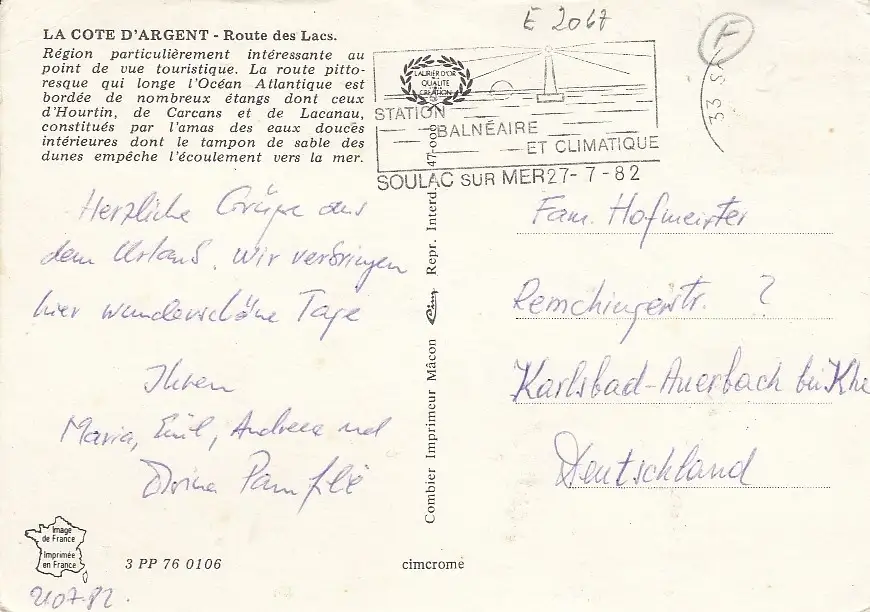 E 2067
F
LA COTE D'ARGENT - Route des Lacs.
Région particulièrement intéressante au
point de vue touristique. La route pitto-
resque qui longe l'Océan Atlantique est
bordée de nombreux étangs dont ceux
d'Hourtin, de Carcans et de Lacanau,
constitués par l'amas des eaux douces
intérieures dont le tampon de sable des
dunes empêche l'écoulement vers la mer.
LAURIER D'OR
QUALITÉ
CRÉATION
STATION
BALNÉAIRE
ET CLIMATIQUE
SOULAC SUR MER 27-7-82
33 S
Herzliche Grüße aus
dem Urlaub. Wir verbringen
hier wunderschöne Tage
Ihnen
Maria, Emil, Andreea und
Dorina
Combier Imprimeur Mâcon Cim Repr. Interd. 47-000
Fam. Hofmeister
Remchingerstr. ?
Karlsbad-Auerbach bei Khe
Deutschland
Image
de France
Imprimée
en France
3 PP 76 0106
cimcrome